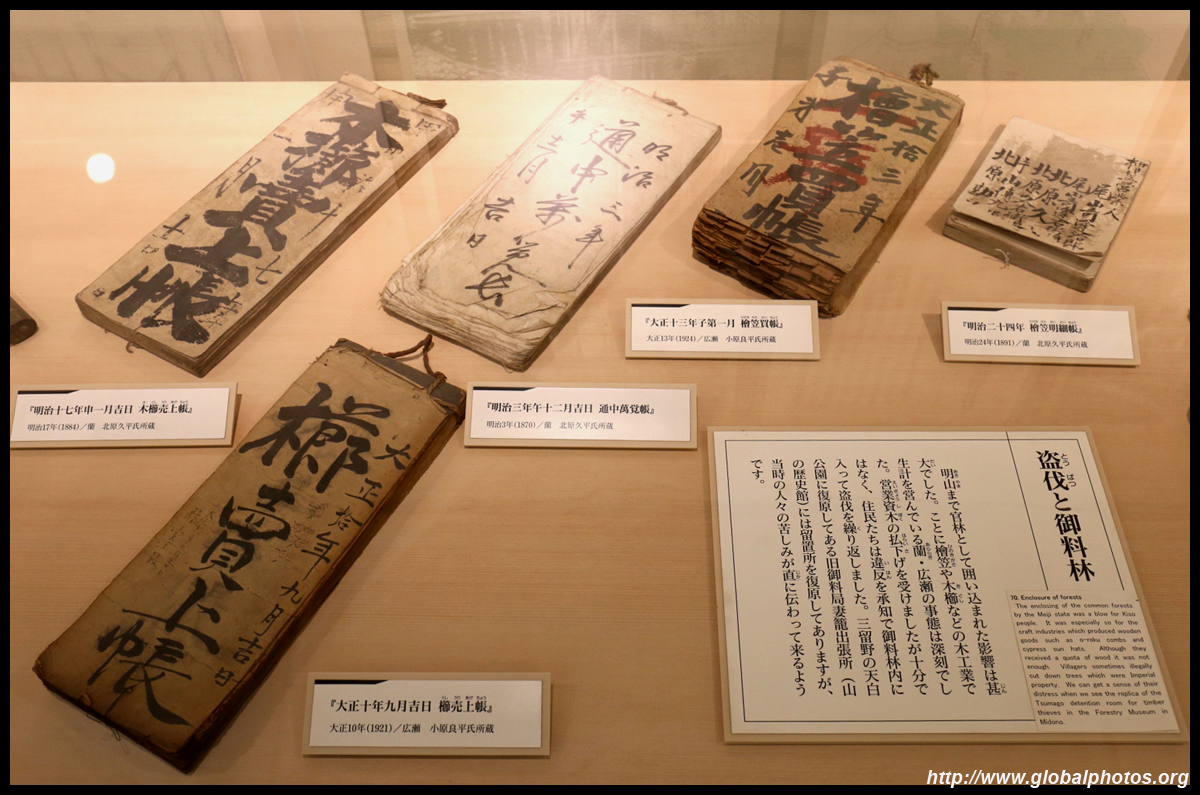 木櫛賣上帳
明治三年
通申萬覚帳
午十二月吉日
大正拾三年
檜笠買帳
子第壱月
大正拾年九月吉日
櫛賣上帳
『明治十七年申一月吉日 木櫛売上帳』
明治17年(1884)／蘭 北原久平氏所蔵
『明治三年午十二月吉日 通申萬覚帳』
明治3年(1870)／蘭 北原久平氏所蔵
『大正十三年子第一月 檜笠買帳』
大正13年(1924)／広瀬 小原良平氏所蔵
『明治二十四年 檜笠明細帳』
明治24年(1891)／蘭 北原久平氏所蔵
『大正十年九月吉日 櫛売上帳』
大正10年(1921)／広瀬 小原良平氏所蔵
盗伐と御料林
明山まで官林として囲い込まれた影響は甚
大でした。ことに檜笠や木櫛などの木工業で
生計を営んでいる蘭・広瀬の事態は深刻でし
た。営業資木の払下げを受けましたが十分で
はなく、住民たちは違反を承知で御料林内に
入って盗伐を繰り返しました。三留野の天白
公園に復原してある旧御料局妻籠出張所（山
の歴史館）には留置所を復原してありますが、
当時の人々の苦しみが直に伝わって来るよう
です。
70. Enclosure of forests
The enclosing of the common forests
by the Meiji state was a blow for Kiso
people. It was especially so for the
craft industries which produced wooden
goods such as o-roku combs and
cypress sun hats. Although they
received a quota of wood it was not
enough. Villagers sometimes illegally
cut down trees which were Imperial
property. We can get a sense of their
distress when we see the replica of the
Tsumago detention room for timber
thieves in the Forestry Museum in
Midono.
http://www.globalphotos.org